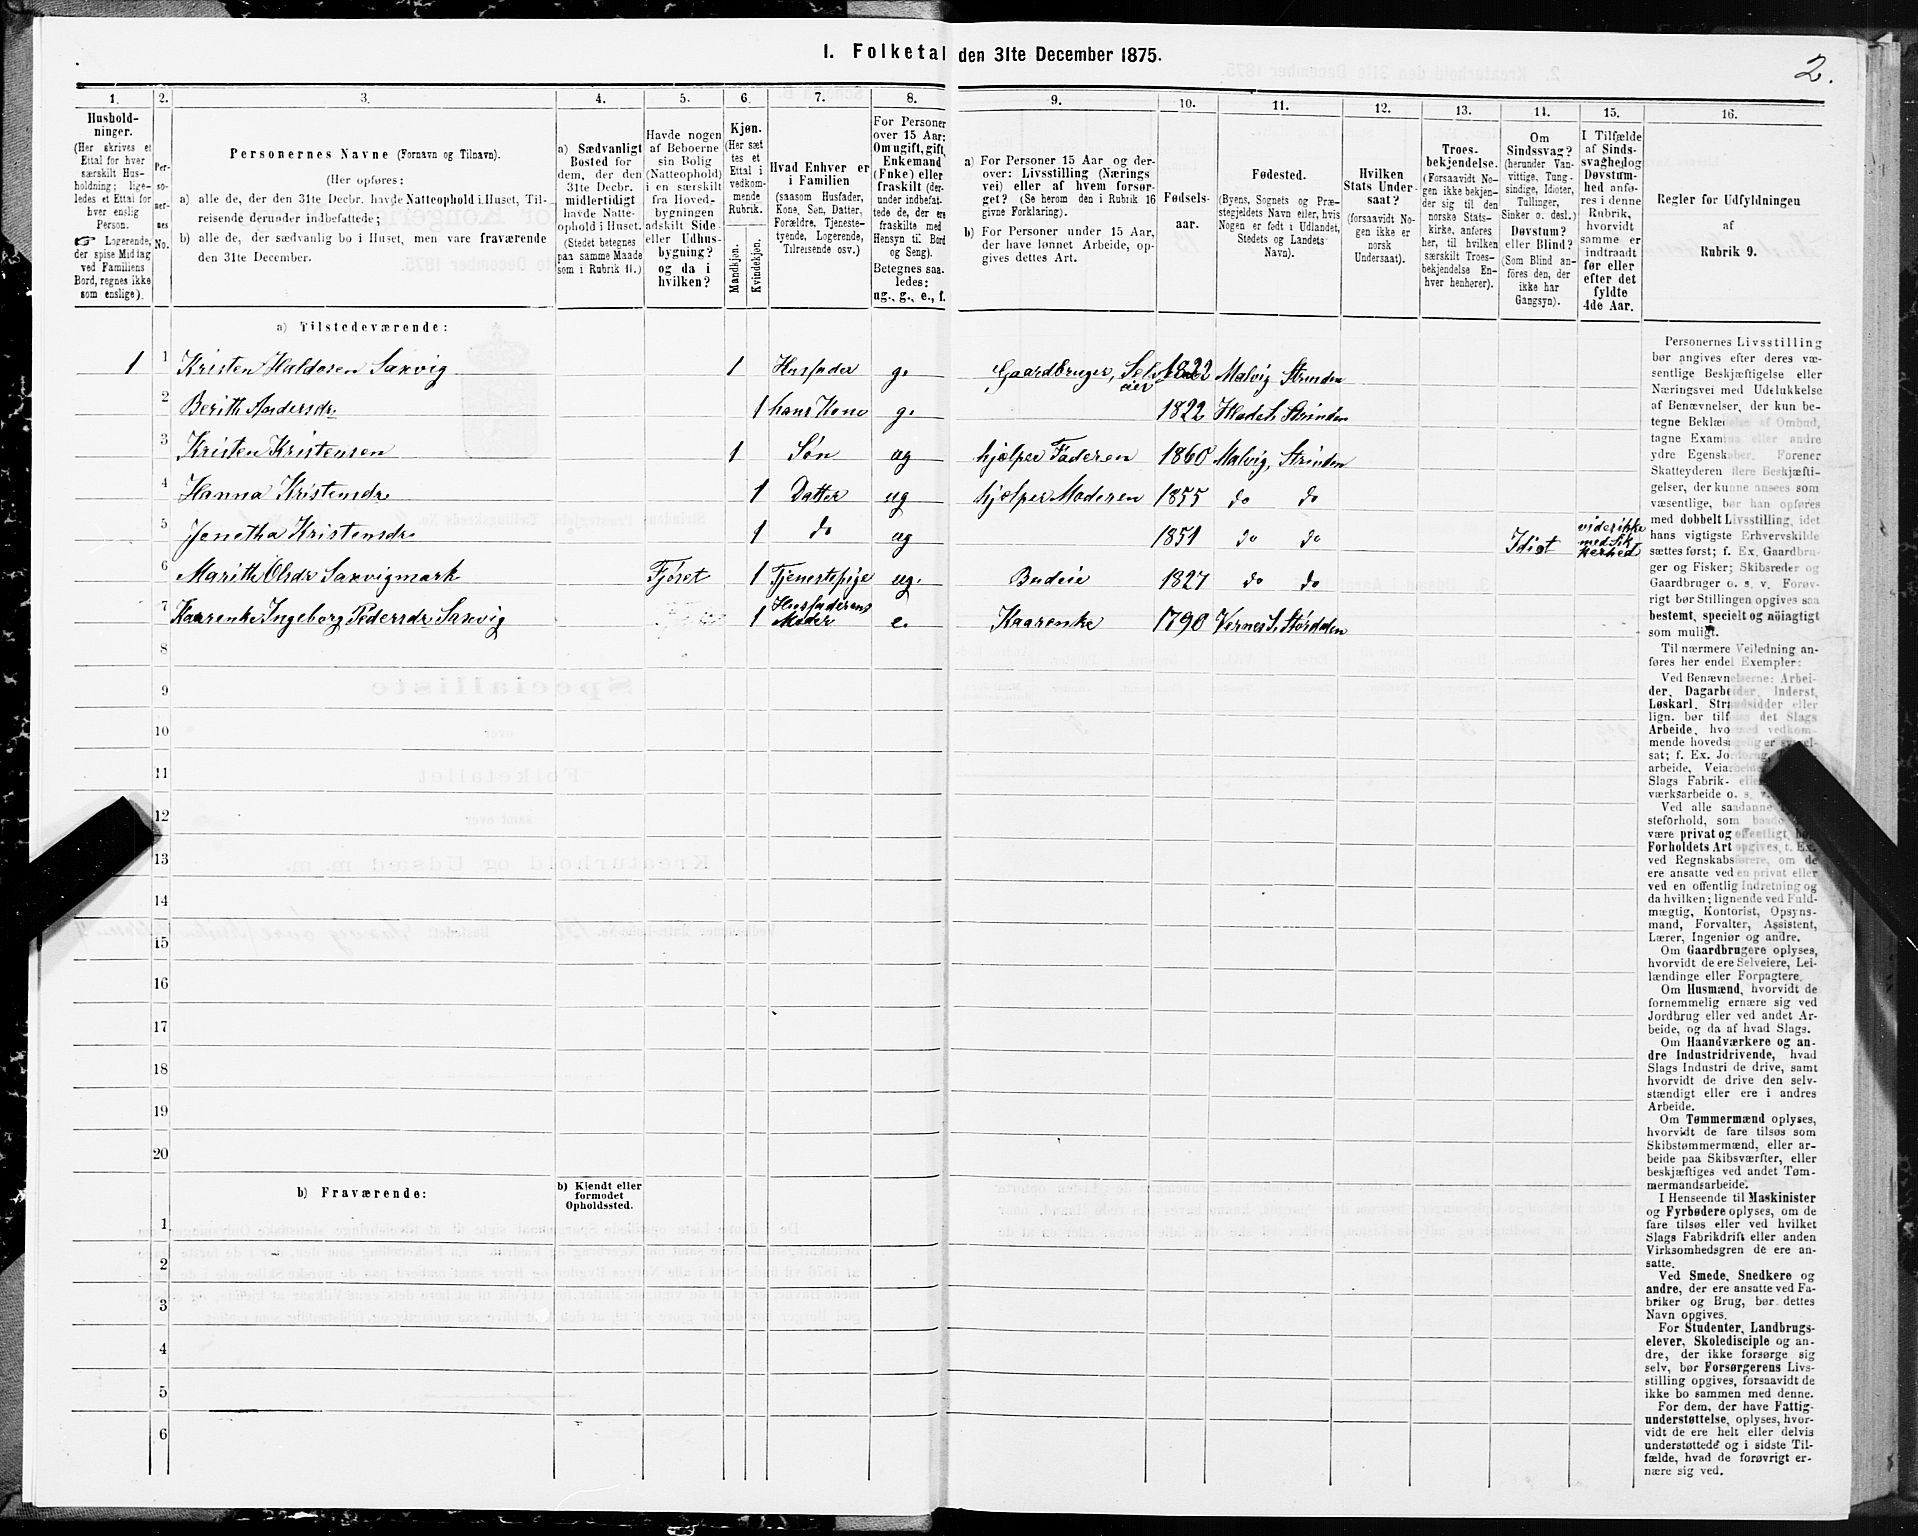 I. Folketal den 31te December 1875.
2.
1.
Hushold-
ninger.
(Her skrives et
Ettal for hver
særskilt Hus-
holdning; lige-
ledes et Ettal for
hver enslig
Person.
☞ Logerende,
der spise Middag
ved Familiens
Bord, regnes ikke
som enslige).
2.
Per-
so-
ner-
nes
No.
3.
Personernes Navne (Fornavn og Tilnavn).
(Her opføres:
a) alle de, der den 31te Decbr. havde Natteophold i Huset, Til-
reisende derunder indbefattede;
b) alle de, der sædvanlig bo i Huset, men vare fraværende
den 31te December.
4.
a) Sædvanligt
Bosted for
dem, der den
31te Decbr.
midlertidigt
havde Natte-
ophold i Huset.
(Stedet betegnes
paa samme Maade
som i Rubrik 11.)
5.
Havde nogen
af Beboerne
sin Bolig
(Natteophold)
i en særskilt
fra Hoved-
bygningen
adskilt Side-
eller Udhus-
bygning?
og da i
hvilken?
6.
Kjøn.
(Her sæt-
tes et
Ettal i
vedkom-
mende
Rubrik.
Mandkjøn.
Kvindekjøn.
7.
Hvad Enhver er
i Familien
(saasom Husfader,
Kone, Søn, Datter,
Forældre, Tjeneste-
tyende, Logerende,
Tilreisende osv.)
8.
For Personer
over 15 Aar:
Om ugift, gift,
Enkemand
(Enke) eller
fraskilt (der-
under indbefat-
tede de, der ere
fraskilte med
Hensyn til Bord
og Seng).
Betegnes saa-
ledes:
ug., g., e., f.
9.
a) For Personer 15 Aar og der-
over: Livsstilling (Nærings
vei) eller af hvem forsør-
get? (Se herom den i Rubrik 16
givne Forklaring).
b) For Personer under 15 Aar,
der have lønnet Arbeide, op-
gives dettes Art.
10.
Fødsels-
aar.
11.
Fødested.
(Byens, Sognets og Præ-
stegjeldets Navn eller, hvis
Nogen er født i Udlandet,
Stedets og Landets
Navn).
12.
Hvilken
Stats Under-
saat?
(forsaavidt No-
gen ikke er
norsk
Undersaat).
13.
Troes-
bekjendelse.
(Forsaavidt No-
gen ikke bekjen-
der sig til den
norske Stats-
kirke, anføres
her, til hvilken
særskilt Troes-
bekjendelse En-
hver henhører).
14.
Om
Sindssvag?
(herunder Van-
vittige, Tung-
sindige, Idioter,
Tullinger,
Sinker o. desl.)
Døvstum?
eller Blind?
(Som Blind an-
føres den, der
ikke har
Gangsyn).
15.
I Tilfælde
af Sinds-
svaghed og
Døvstum-
hed anfø-
res i denne
Rubrik,
hvorvidt
samme er
indtraadt
før eller
efter det
fyldte
4de Aar.
16.
Regler for Udfyldningen
af
Rubrik 9.
a) Tilstedeværende:
1 1 Kristen Haldosen Saxvig 1 Husfader g. Gaardbruger, Selv-
eier 1822 Malvig Strinden
2 Berith Andersdr. 1 hans Kone g. 1822 Hladets Strinden
3 Kristen Kristensen 1 Søn ug hjælper Faderen 1860 Malvig, Strinden
4 Hanna Kristensdr 1 Datter ug hjælper Moderen 1855 do do
5 Jonetha Kristensdr 1 do ug 1851 do do Idiot vides ikke
med Sik
kerhed
6 Marith Olsdr Saxvigmark Fjøset 1 Tjenestepige ug. Budeie 1827 do do
7 Kaarenke Ingeborg Pedersdr Saxvig 1 Husfaderens
Moder e. Kaarenke 1790 Vernes S. Størdalen
8
9
10
11
12
13
14
15
16
17
18
19
20
b) Fraværende:
b) Kjendt eller
formodet
Opholdssted.
1
2
3
4
5
6
Personernes Livsstilling
bør angives efter deres væ-
sentlige Beskjæftigelse eller
Næringsvei med Udelukkelse
af Benævnelser, der kun be-
tegne Beklædelse af Ombud,
tagne Examina eller andre
ydre Egenskaber. Forener
Skatteyderen flere Beskjæfti-
gelser, der kunne ansees som
væsentlige, bør han opføres
med dobbelt Livsstilling, idet
hans vigtigste Erhvervskilde
sættes først; f. Ex. Gaardbru-
ger og Fisker; Skibsreder og
Gaardbruger o. s. v. Forøv-
rigt bør Stillingen opgives saa
bestemt, specielt og nøiagtigt
som muligt.
Til nærmere Veiledning an-
føres her endel Exempler:
Ved Benævnelserne: Arbei-
der, Dagarbeider, Inderst,
Løskarl, Strandsidder eller
lign. bør tilføies det Slags
Arbeide, hvormed vedkom-
mende hovedsagelig er syssel-
sat; f. Ex. Jordbrug,
arbeide, Veiarbeide,
Slags Fabrik- eller
værksarbeide o. s. v.
Ved alle saadanne
steforhold, som baade
være privat og offentligt, bør
Forholdets Art opgives, t. Ex.
ved Regnskabsførere, om de
ere ansatte ved en privat eller
ved en offentlig Indretning og
da hvilken; lignende ved Fuld-
mægtig, Kontorist, Opsyns-
mand, Forvalter, Assistent,
Lærer, Ingeniør og andre.
Om Gaardbrugere oplyses,
hvorvidt de ere Selveiere, Lei-
lændinge eller Forpagtere.
Om Husmænd, hvorvidt de
fornemmelig ernære sig ved
Jordbrug eller ved andet Ar-
beide, og da af hvad Slags.
Om Haandværkere og an-
dre Industridrivende, hvad
Slags Industri de drive, samt
hvorvidt de drive den selv-
stændigt eller ere i andres
Arbeide.
Om Tømmermænd oplyses,
hvorvidt de fare tilsøs som
Skibstømmermænd, eller ar-
beide paa Skibsværfter, eller
beskjæftiges ved andet Tøm-
mermandsarbeide.
I Henseende til Maskinister
og Fyrbødere oplyses, om de
fare tilsøs eller ved hvilket
Slags Fabrikdrift eller anden
Virksomhedsgren de ere an-
satte.
Ved Smede, Snedkere og
andre, der ere ansatte ved Fa-
briker og Brug, bør dettes
Navn opgives.
For Studenter, Landbrugs-
elever, Skoledisciple og an-
dre, der ikke forsørge sig
selv, bør Forsørgerens Livs-
stilling opgives, forsaavidt de
ikke bo sammen med denne.
For dem, der have Fattig-
understøttelse, oplyses, hvor-
vidt de ere helt eller delvis
understøttede og i sidste Til-
fælde, hvad de forøvrigt er-
nære sig ved.